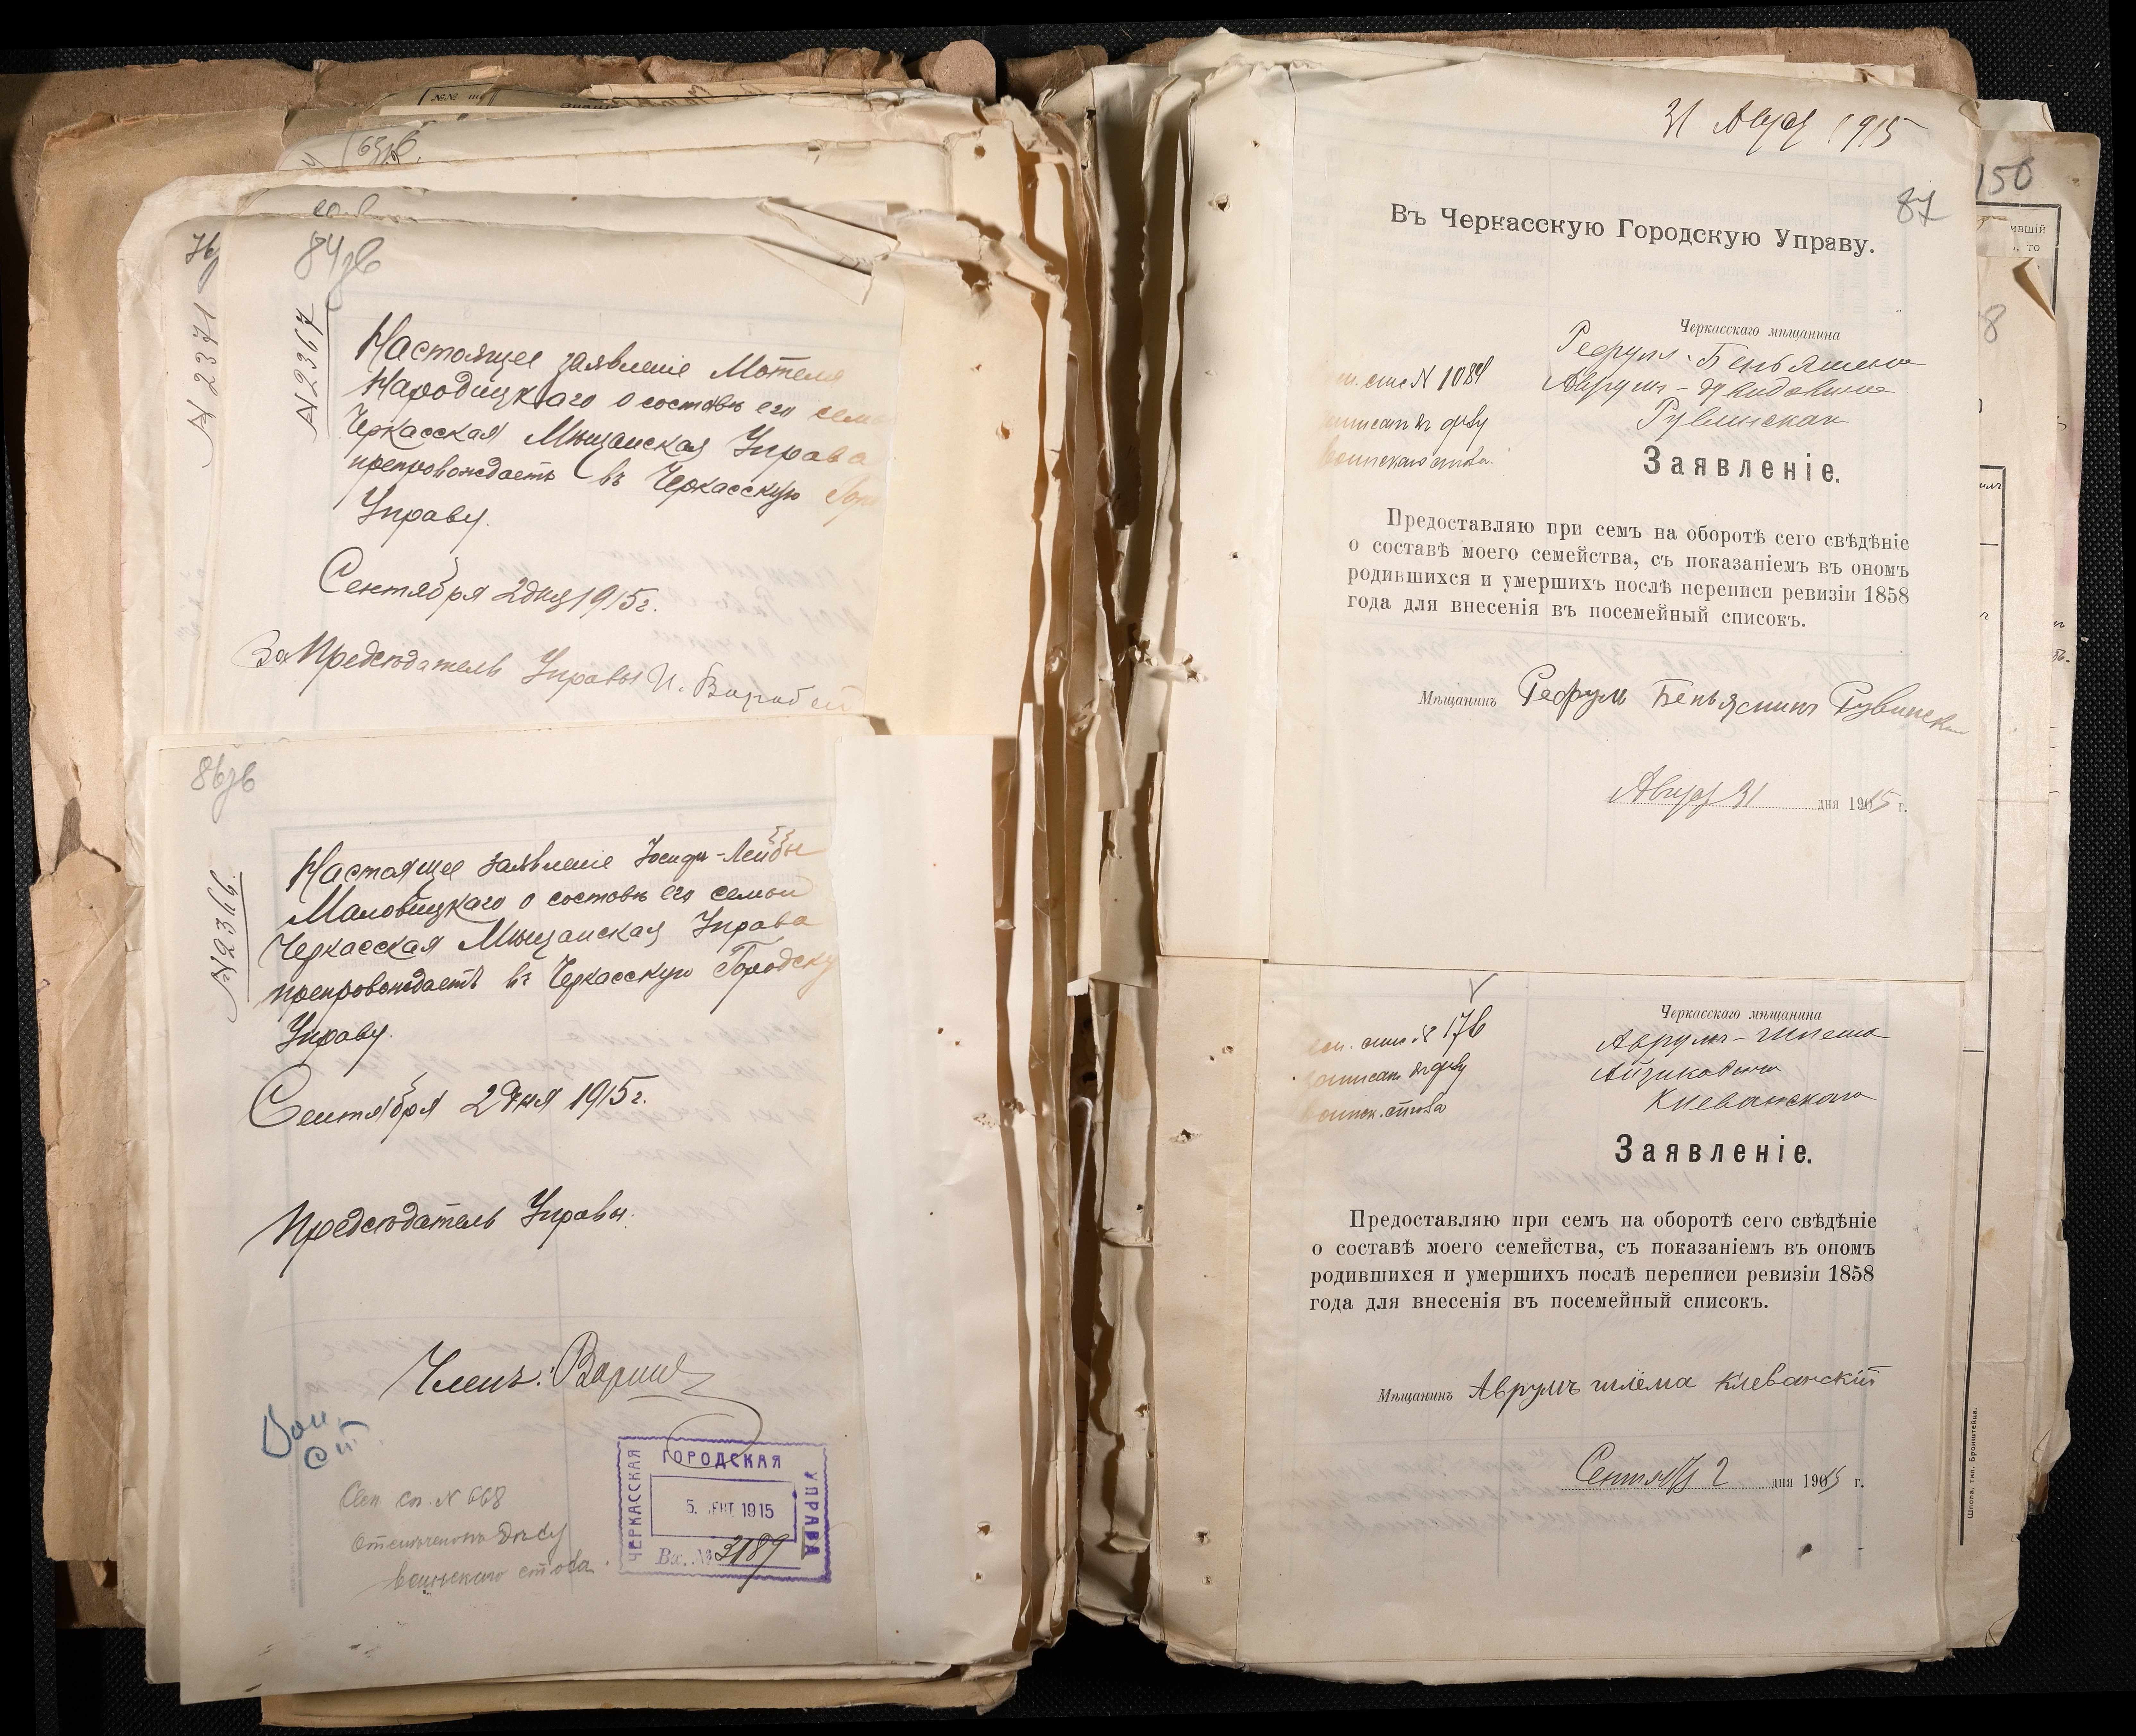 84зв
N 2371
N 2367
Настоящее заявленіе Мотеля
Народицкаго о составѣ его семьи
Черкасская Мѣщанская Управа
препровождаетъ въ Черкасскую Гор
Управу.
Сентября 2 дня 1915 г.
За Предсѣдатель Управы И.
86зв
N 2366
Настоящее заявленіе Іосифа-Лейбы
Маловицкаго о составѣ его семьи
Черкасская Мѣщанская Управа
препровождаетъ въ Черкасскую Городску
Управу.
Сентября 2 дня 1915 г.
Предсѣдатель Управы.
Членъ:
Воин.
ст.
Сем сп. N 668
дѣлу
воинскаго стола.
ЧЕРКАССКАЯ
ГОРОДСКАЯ
УПРАВА
5. СЕНТ. 1915
Вх. № 3189
31 Авг 1915
87
150
Въ Черкасскую Городскую Управу.
Черкасскаго мѣщанина
Рефула-Беньямина
Аврумъ-Дувидовича
Рувинскаго
спис N 1084
записан по дѣлу
воинскаго стола.
Заявленіе.
Предоставляю при семъ на оборотѣ сего свѣдѣніе
о составѣ моего семейства, съ показаніемъ въ ономъ
родившихся и умершихъ послѣ переписи ревизіи 1858
года для внесенія въ посемейный списокъ.
Мѣщанинъ Рефул Беньяминъ Рувинск
Авгус 31 дня 1915 г.
Черкасскаго мѣщанина
сем. спис. № 176
Аврумъ-Шлема
записан по дѣлу
Айзиковича
воинск. стола
Клеванскаго
Заявленіе.
Предоставляю при семъ на оборотѣ сего свѣдѣніе
о составѣ моего семейства, съ показаніемъ въ ономъ
родившихся и умершихъ послѣ переписи ревизіи 1858
года для внесенія въ посемейный списокъ.
Мѣщанинъ Аврумъ шлема Клеванскій
Сентяб 2 дня 1915 г.
Шпола, тип. Бронштейна.